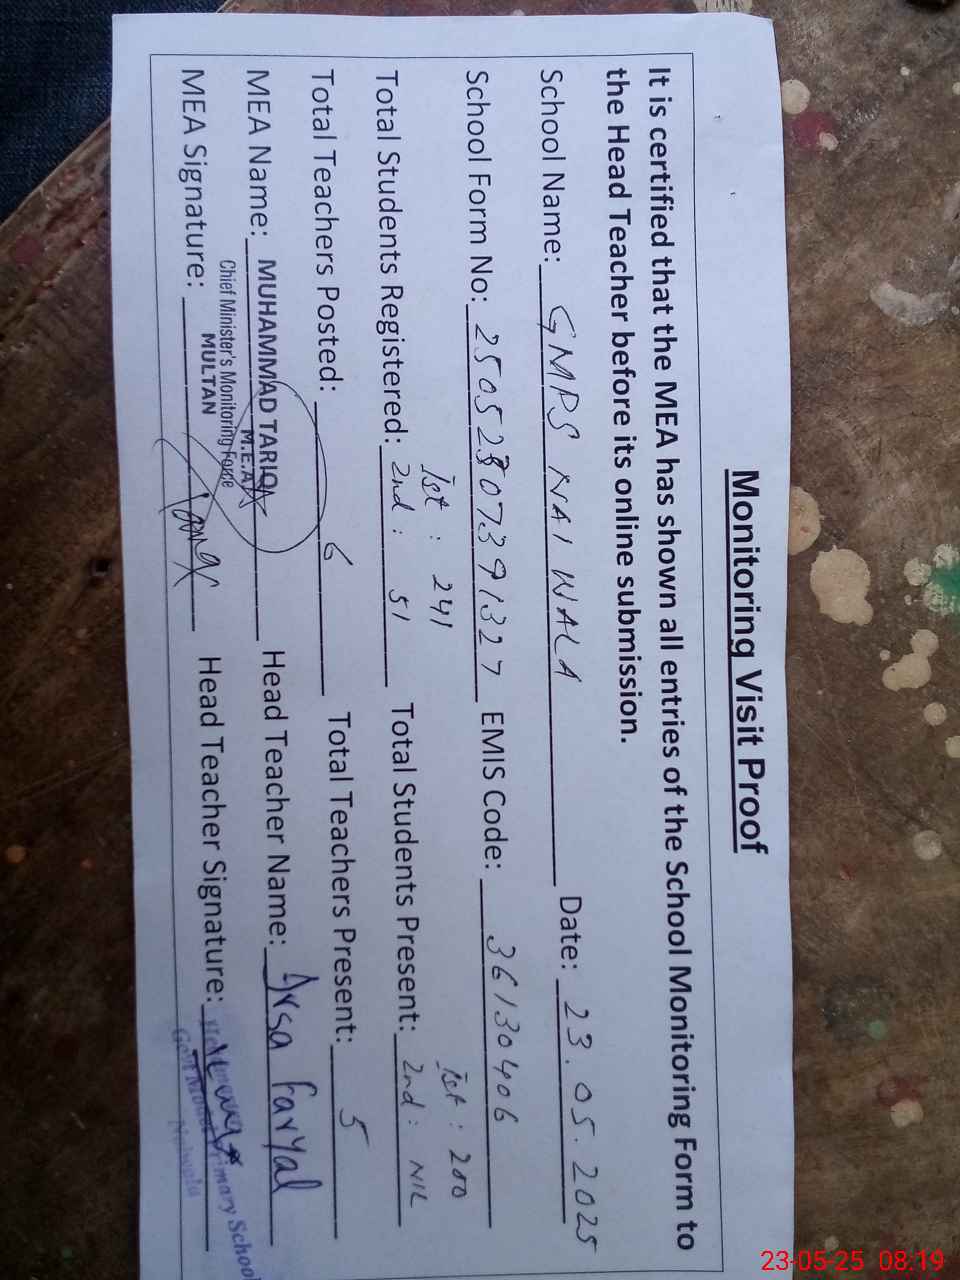 Monitoring Visit Proof
It is certified that the MEA has shown all entries of the School Monitoring Form to
the Head Teacher before its online submission.
School Name: GMPS NAI WALA Date: 23.05.2025
School Form No: 25052307391327 EMIS Code: 36130406
Ist : 241 Ist : 200
Total Students Registered: 2nd : 51 Total Students Present: 2nd : NIL
Total Teachers Posted: 6 Total Teachers Present: 5
MEA Name: MUHAMMAD TARIQ Head Teacher Name: Arsa Faryal
M.E.A
Chief Minister's Monitoring Force
MULTAN
MEA Signature: Head Teacher Signature:
Govt Model Primary School
23-05-25 08:19